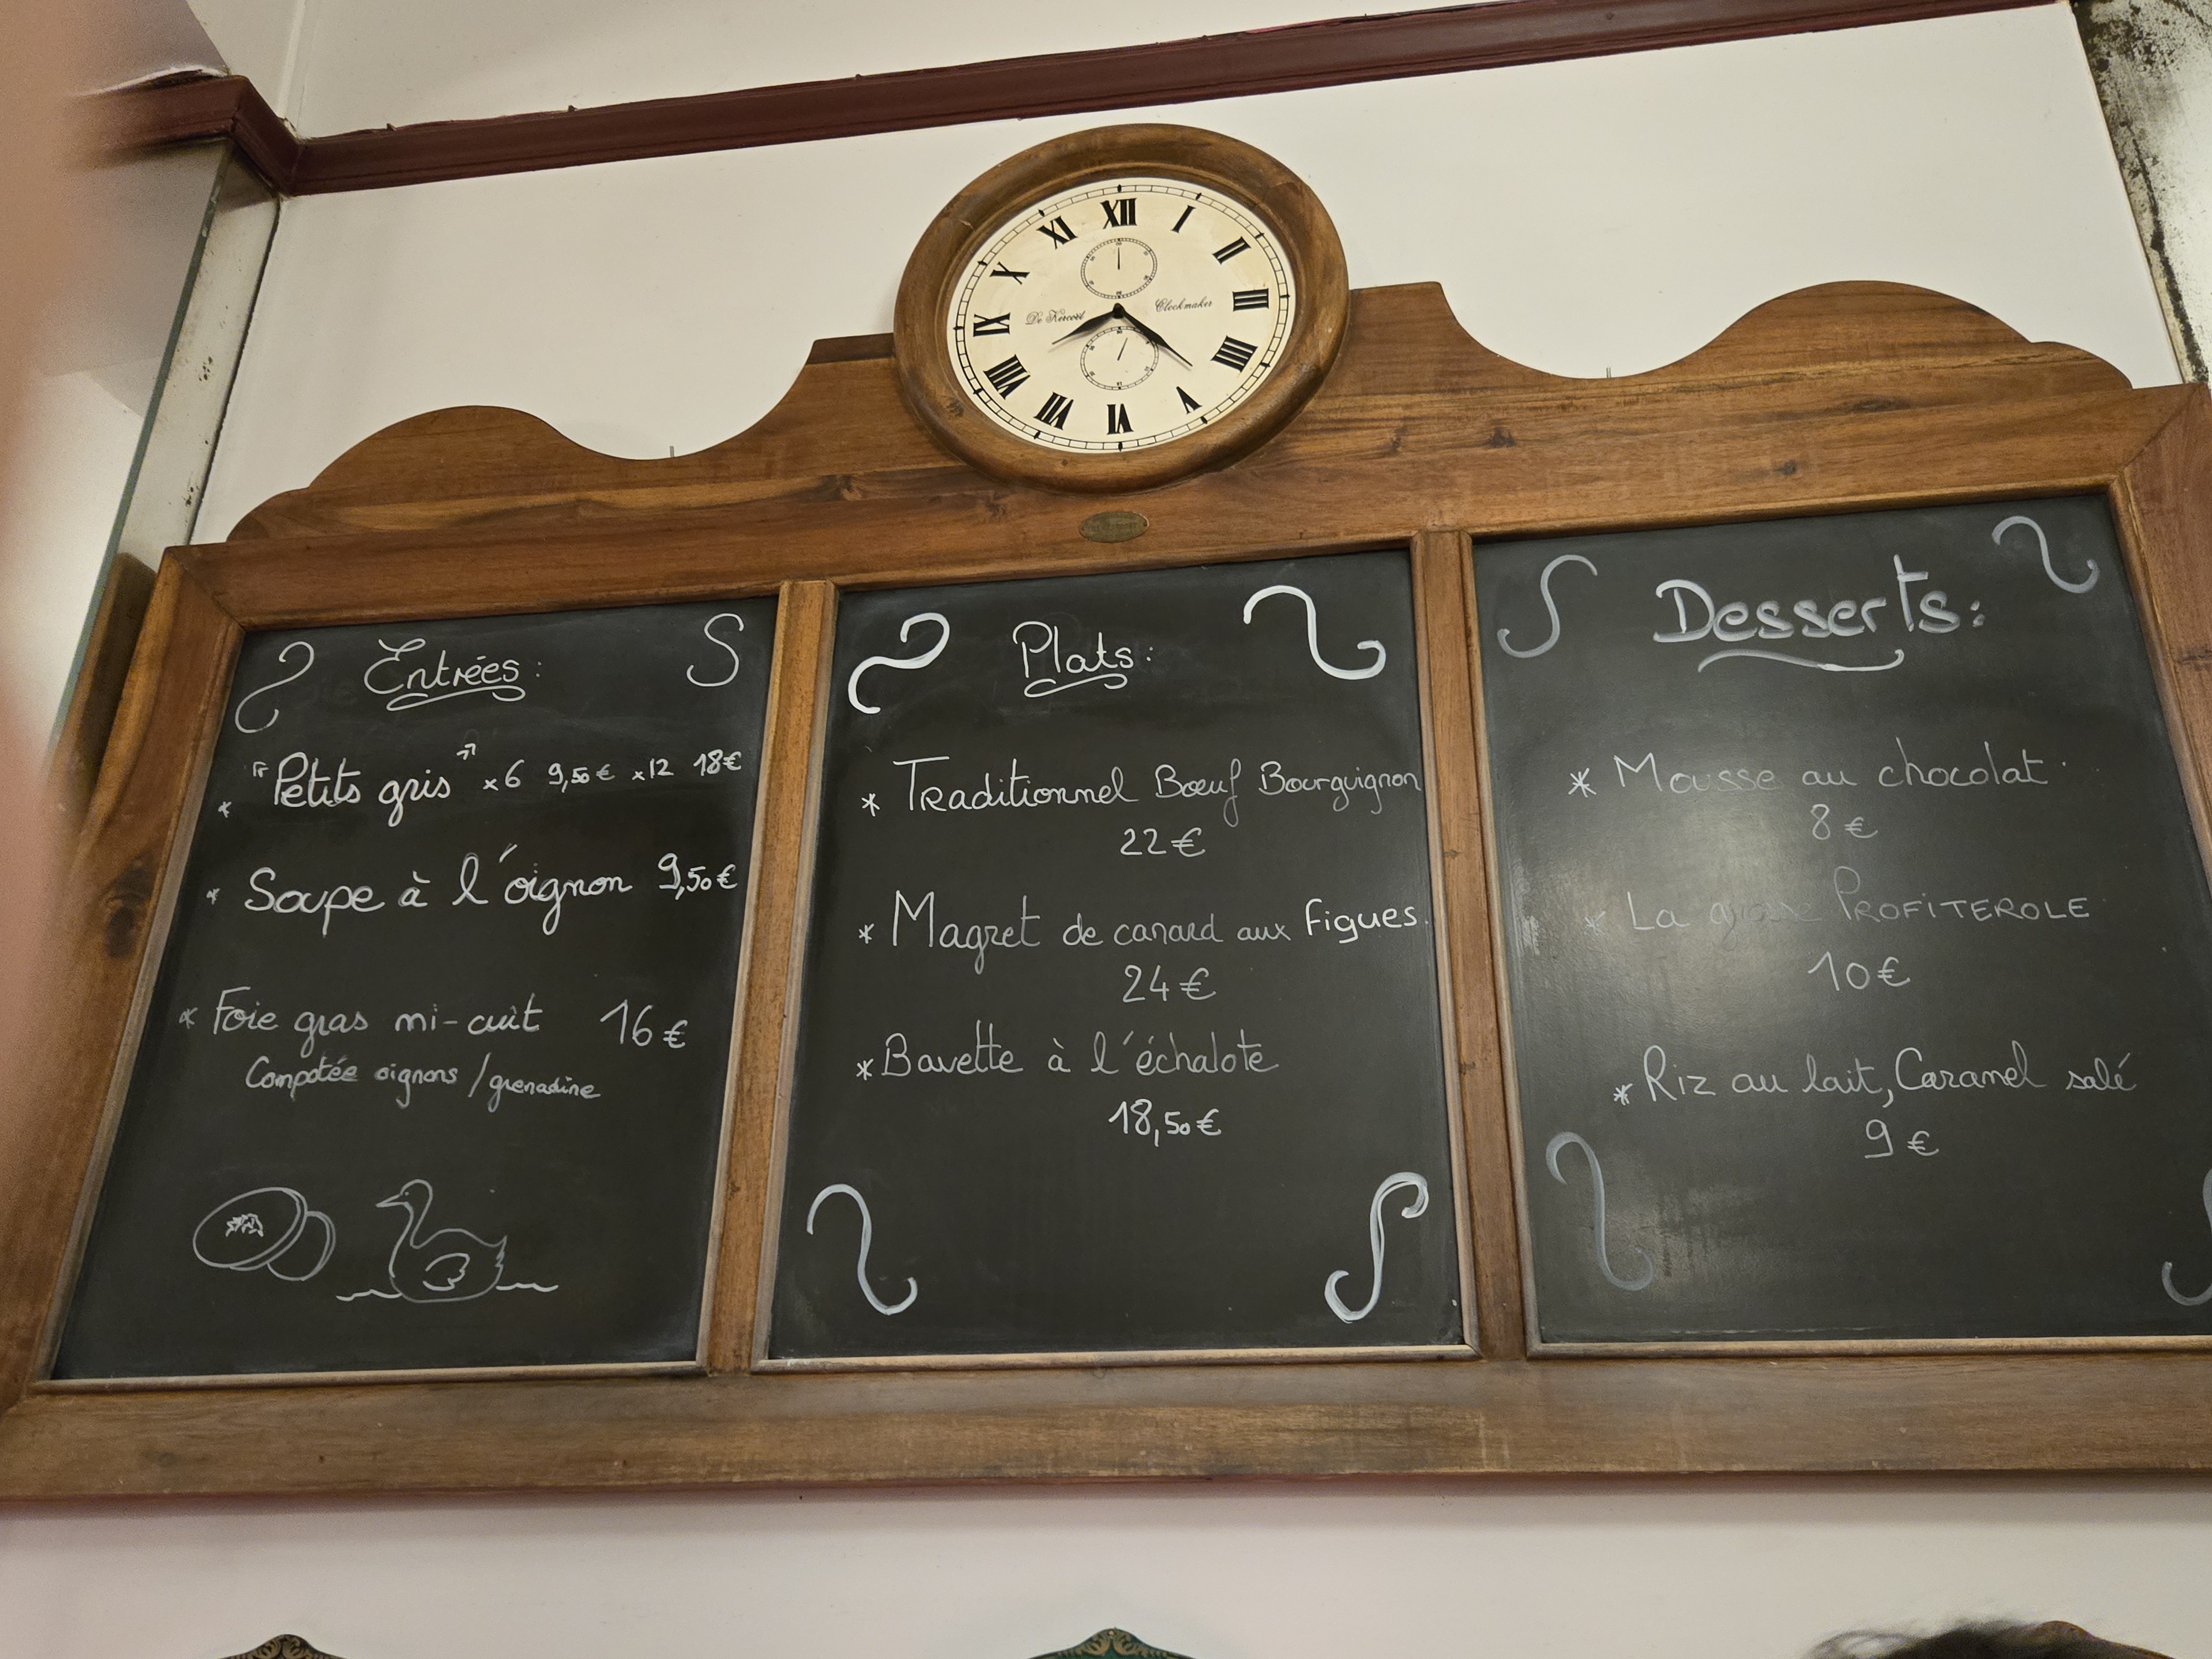 XII
I
II
III
IIII
V
VI
VII
VIII
IX
X
XI
De Kercoët Clockmaker
Entrées:
* "Petits gris" x6 9,50€ x12 18€
* Soupe à l'oignon 9,50€
* Foie gras mi-cuit 16€
Compotée oignons / grenadine
Plats:
* Traditionnel Bœuf Bourguignon
22€
* Magret de canard aux figues.
24€
* Bavette à l'échalote
18,50€
Desserts:
* Mousse au chocolat
8€
* La grosse PROFITEROLE
10€
* Riz au lait, Caramel salé
9€